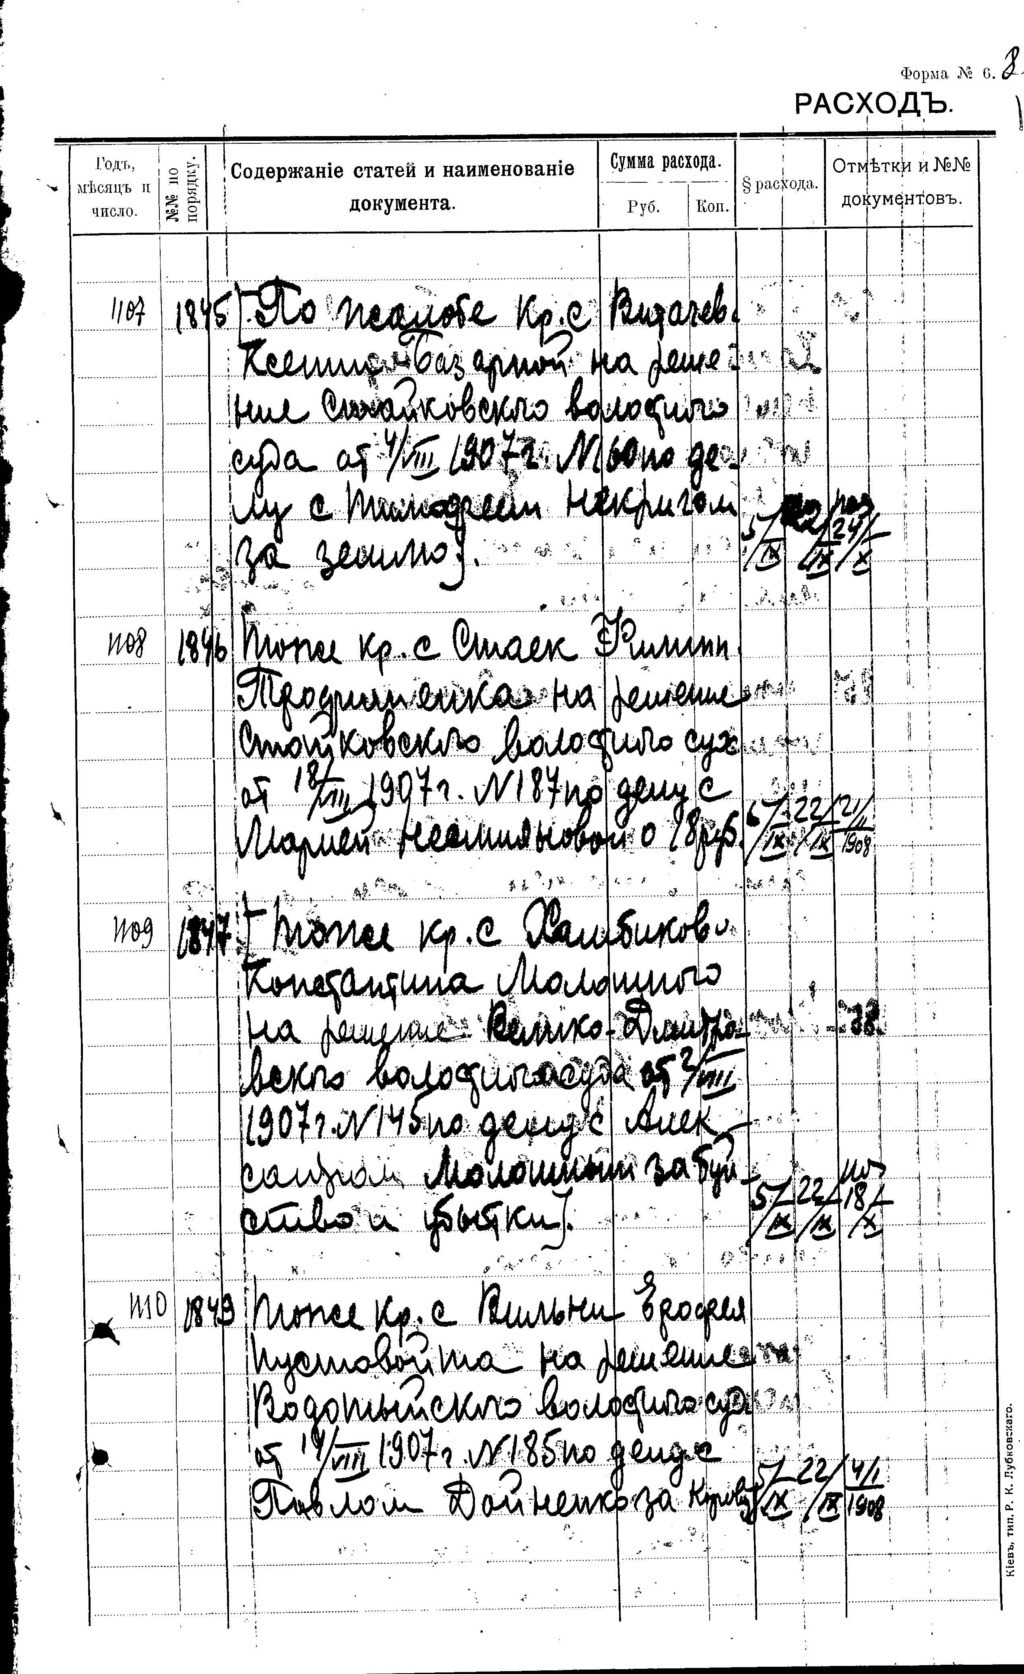 Форма № 6.
РАСХОДЪ.
Годъ, мѣсяцъ и число.
№№ по порядку.
Содержаніе статей и наименованіе документа.
Сумма расхода.
Руб. Коп.
§ расхода.
Отмѣтки и №№ документовъ.
1107 1845 По жалобе кр. с Витачев
Ксении Базарной на реше-
ние Стайковского волостного
суда от 4/VIII 1907 г. N 160 по де-
лу с Тимофеем Некригом
за землю.
5/IX 22/IX 24/X
1108 1846 Тоже кр. с Стаек Филипп
Трофименка на решение
Стайковского волостного суда
от 18/VIII 1907 г. N 187 по делу с
Марией Несмияновой о 18 руб.
6/IX 22/IX 21/II 1908
1109 1847 Тоже кр. с Халибиков
Константина Молошного
на решение Велико-Дмитро-
вского волостного суда от 2/VIII
1907 г. N 145 по делу с Алек-
сандром Молошным за буй-
ство и убытки.
5/IX 22/IX 18/X
1110 Тоже кр. с Вильни Ерофея
Пустовойта на решение
Водотыйского волостного суда
от 19/VIII 1907 г. N 185 по делу с
Павлом Дойненко за корову
5/IX 22/IX 4/I 1908
Кіевъ, тип. Р. К. Лубковскаго.